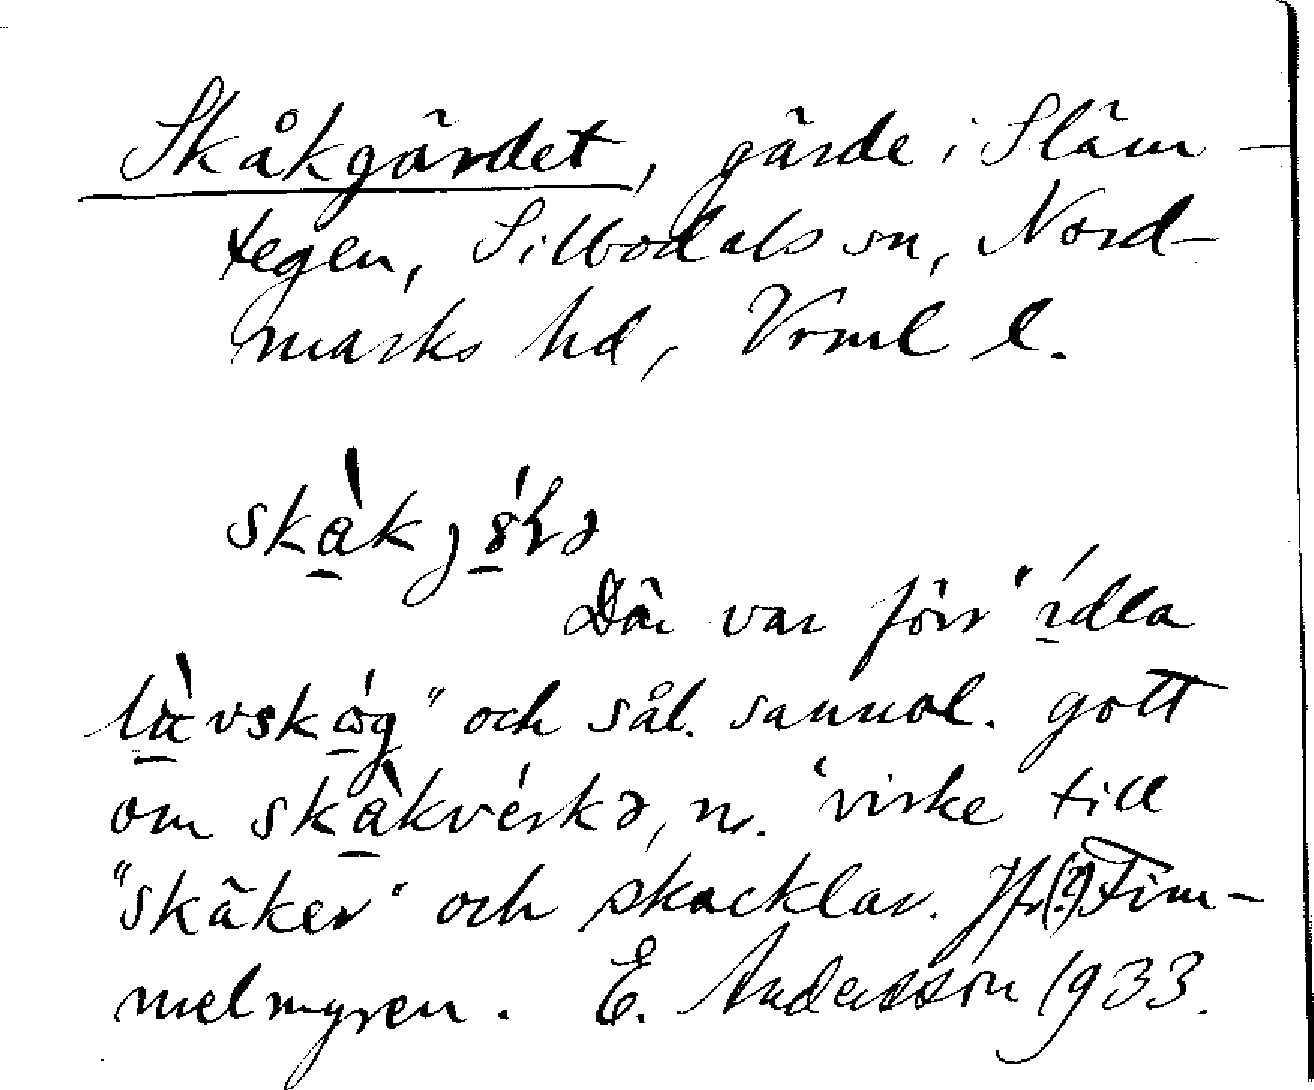 Skåkgärdet, gärde i Släm-
tegen, Silbodals sn, Nord-
marks hd, Vrml l.
Där var förr "idla
lòvskog" och sål. sannol. gott
om skàkvérkə, n. 'virke till
"skäker" och skacklar. Jfr (?) Tim-
melmyren. E. Andersson 1933.